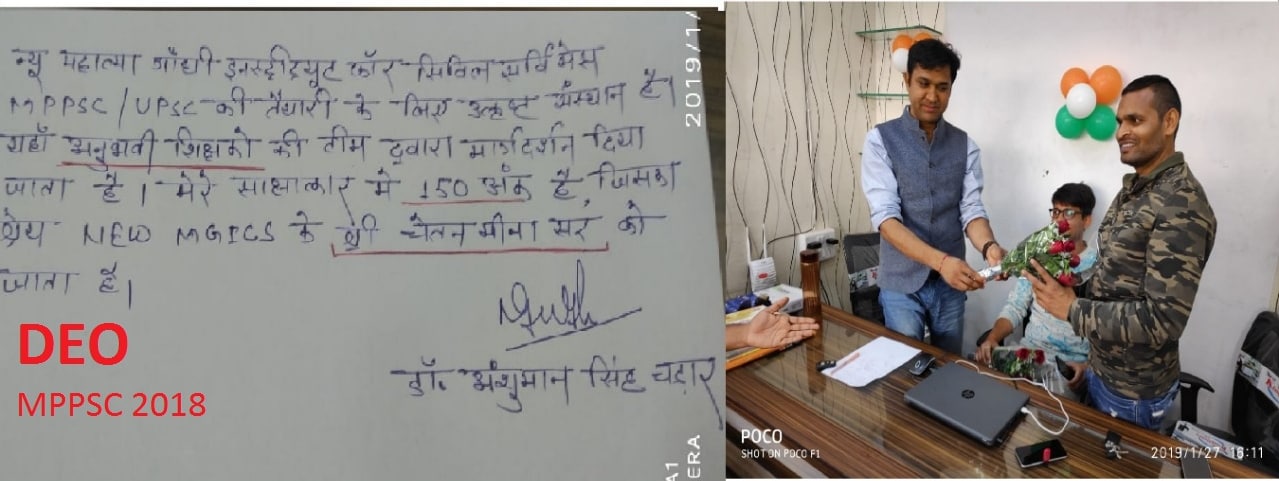 न्यू महात्मा गाँधी इन्स्टीट्यूट फॉर सिविल सर्विसेस
MPPSC/UPSC की तैयारी के लिए उत्कृष्ट संस्थान है।
यहाँ अनुभवी शिक्षको की टीम द्वारा मार्गदर्शन दिया
जाता है। मेरे साक्षात्कार मे 150 अंक है, जिसका
श्रेय NEW MGICS के श्री चेतन मीना सर को
जाता है।
डॉ. अंशुमान सिंह चढ़ार
DEO
MPPSC 2018
2019/1/
A1
ERA
POCO
SHOT ON POCO F1
2019/1/27 16:11